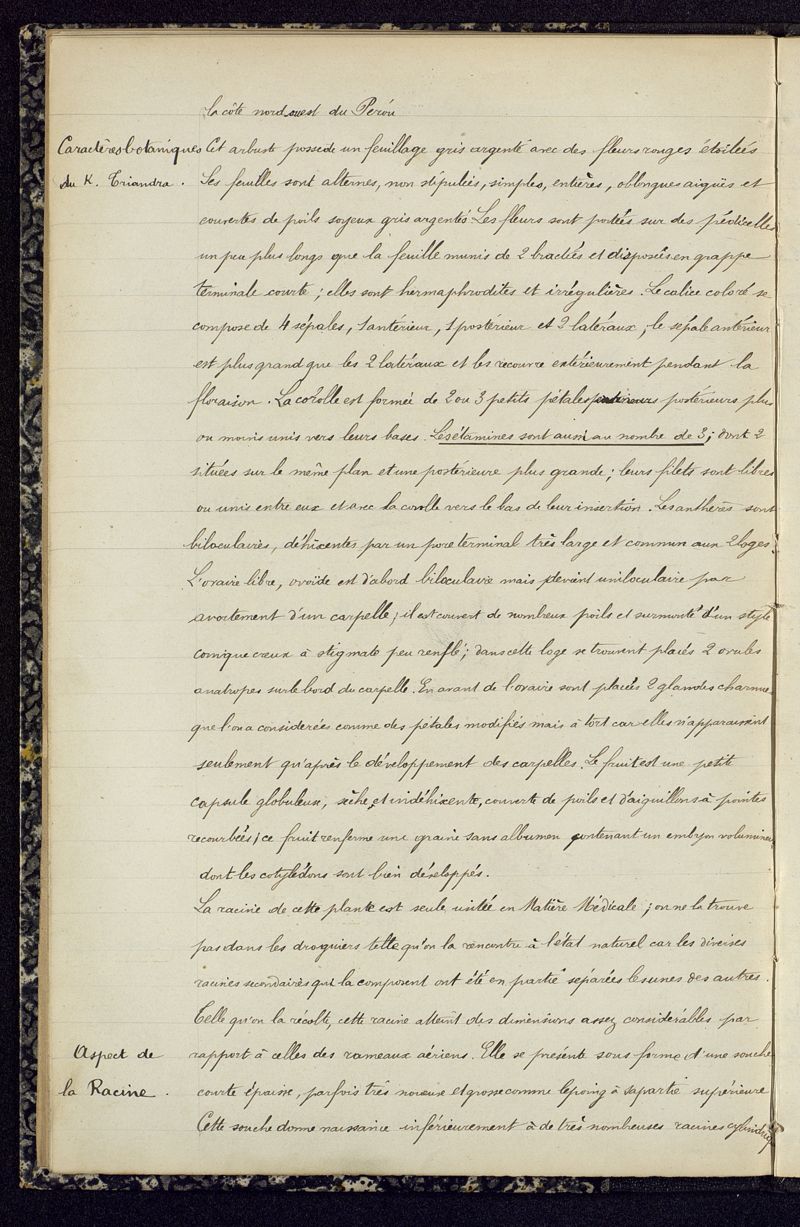 la côte nord ouest du Pérou
Caractères botaniques
du K. Triandra.
Cet arbuste possède un feuillage gris argenté avec des fleurs rouges étoilées
Ses feuilles sont alternes, non stipulées, simples, entières, oblongues aiguës et
couvertes de poils soyeux gris argentés. Les fleurs sont portées sur des pédicelles
un peu plus longs que la feuille munis de 2 bractées et disposées en grappe
terminale courte ; elles sont hermaphrodites et irrégulières. Le calice coloré se
compose de 4 sépales, 1 antérieur, 1 postérieur et 2 latéraux ; le sépale antérieur
est plus grand que les 2 latéraux et les recouvre extérieurement pendant la
floraison. La corolle est formée de 2 ou 3 petits pétales postérieurs plus
ou moins unis vers leurs bases. Les étamines sont aussi au nombre de 3 ; dont 2
situées sur le même plan et une postérieure plus grande ; leurs filets sont libres
ou unis entre eux et avec la corolle vers le bas de leur insertion. Les anthères sont
biloculaires, déhixentes par un pore terminal très large et commun aux 2 loges.
L'ovaire libre, ovoïde est d'abord biloculaire mais devient uniloculaire par
avortement d'un carpelle ; il est couvert de nombreux poils et surmonté d'un style
conique creux à stigmate peu renflé ; dans cette loge se trouvent placés 2 ovules
anatropes sur le bord du carpelle. En avant de l'ovaire sont placées 2 glandes charnue
que l'on a considérées comme des pétales modifiés mais à tort car elles n'apparaissent
seulement qu'après le développement des carpelles. Le fruit est une petite
capsule globuleuse, sèche, et indéhixente, couverte de poils et d'aiguillons à pointes
recourbées ; ce fruit renferme une graine sans albumen contenant un embryon volumineux
dont les cotylédons sont bien développés.
La racine de cette plante est seule usitée en Matière Médicale ; on ne la trouve
pas dans les droguiers telle qu'on la rencontre à l'état naturel car les diverses
racines secondaires qui la composent ont été en partie séparées les unes des autres.
Telle qu'on la récolte, cette racine atteint des dimensions assez considérables par
Aspect de
la Racine.
rapport à celles des rameaux aériens. Elle se présente sous forme d'une souche
courte épaisse, parfois très noueuse et grosse comme le poing à sa partie supérieure
Cette souche donne naissance inférieurement à de très nombreuses racines cylindriq